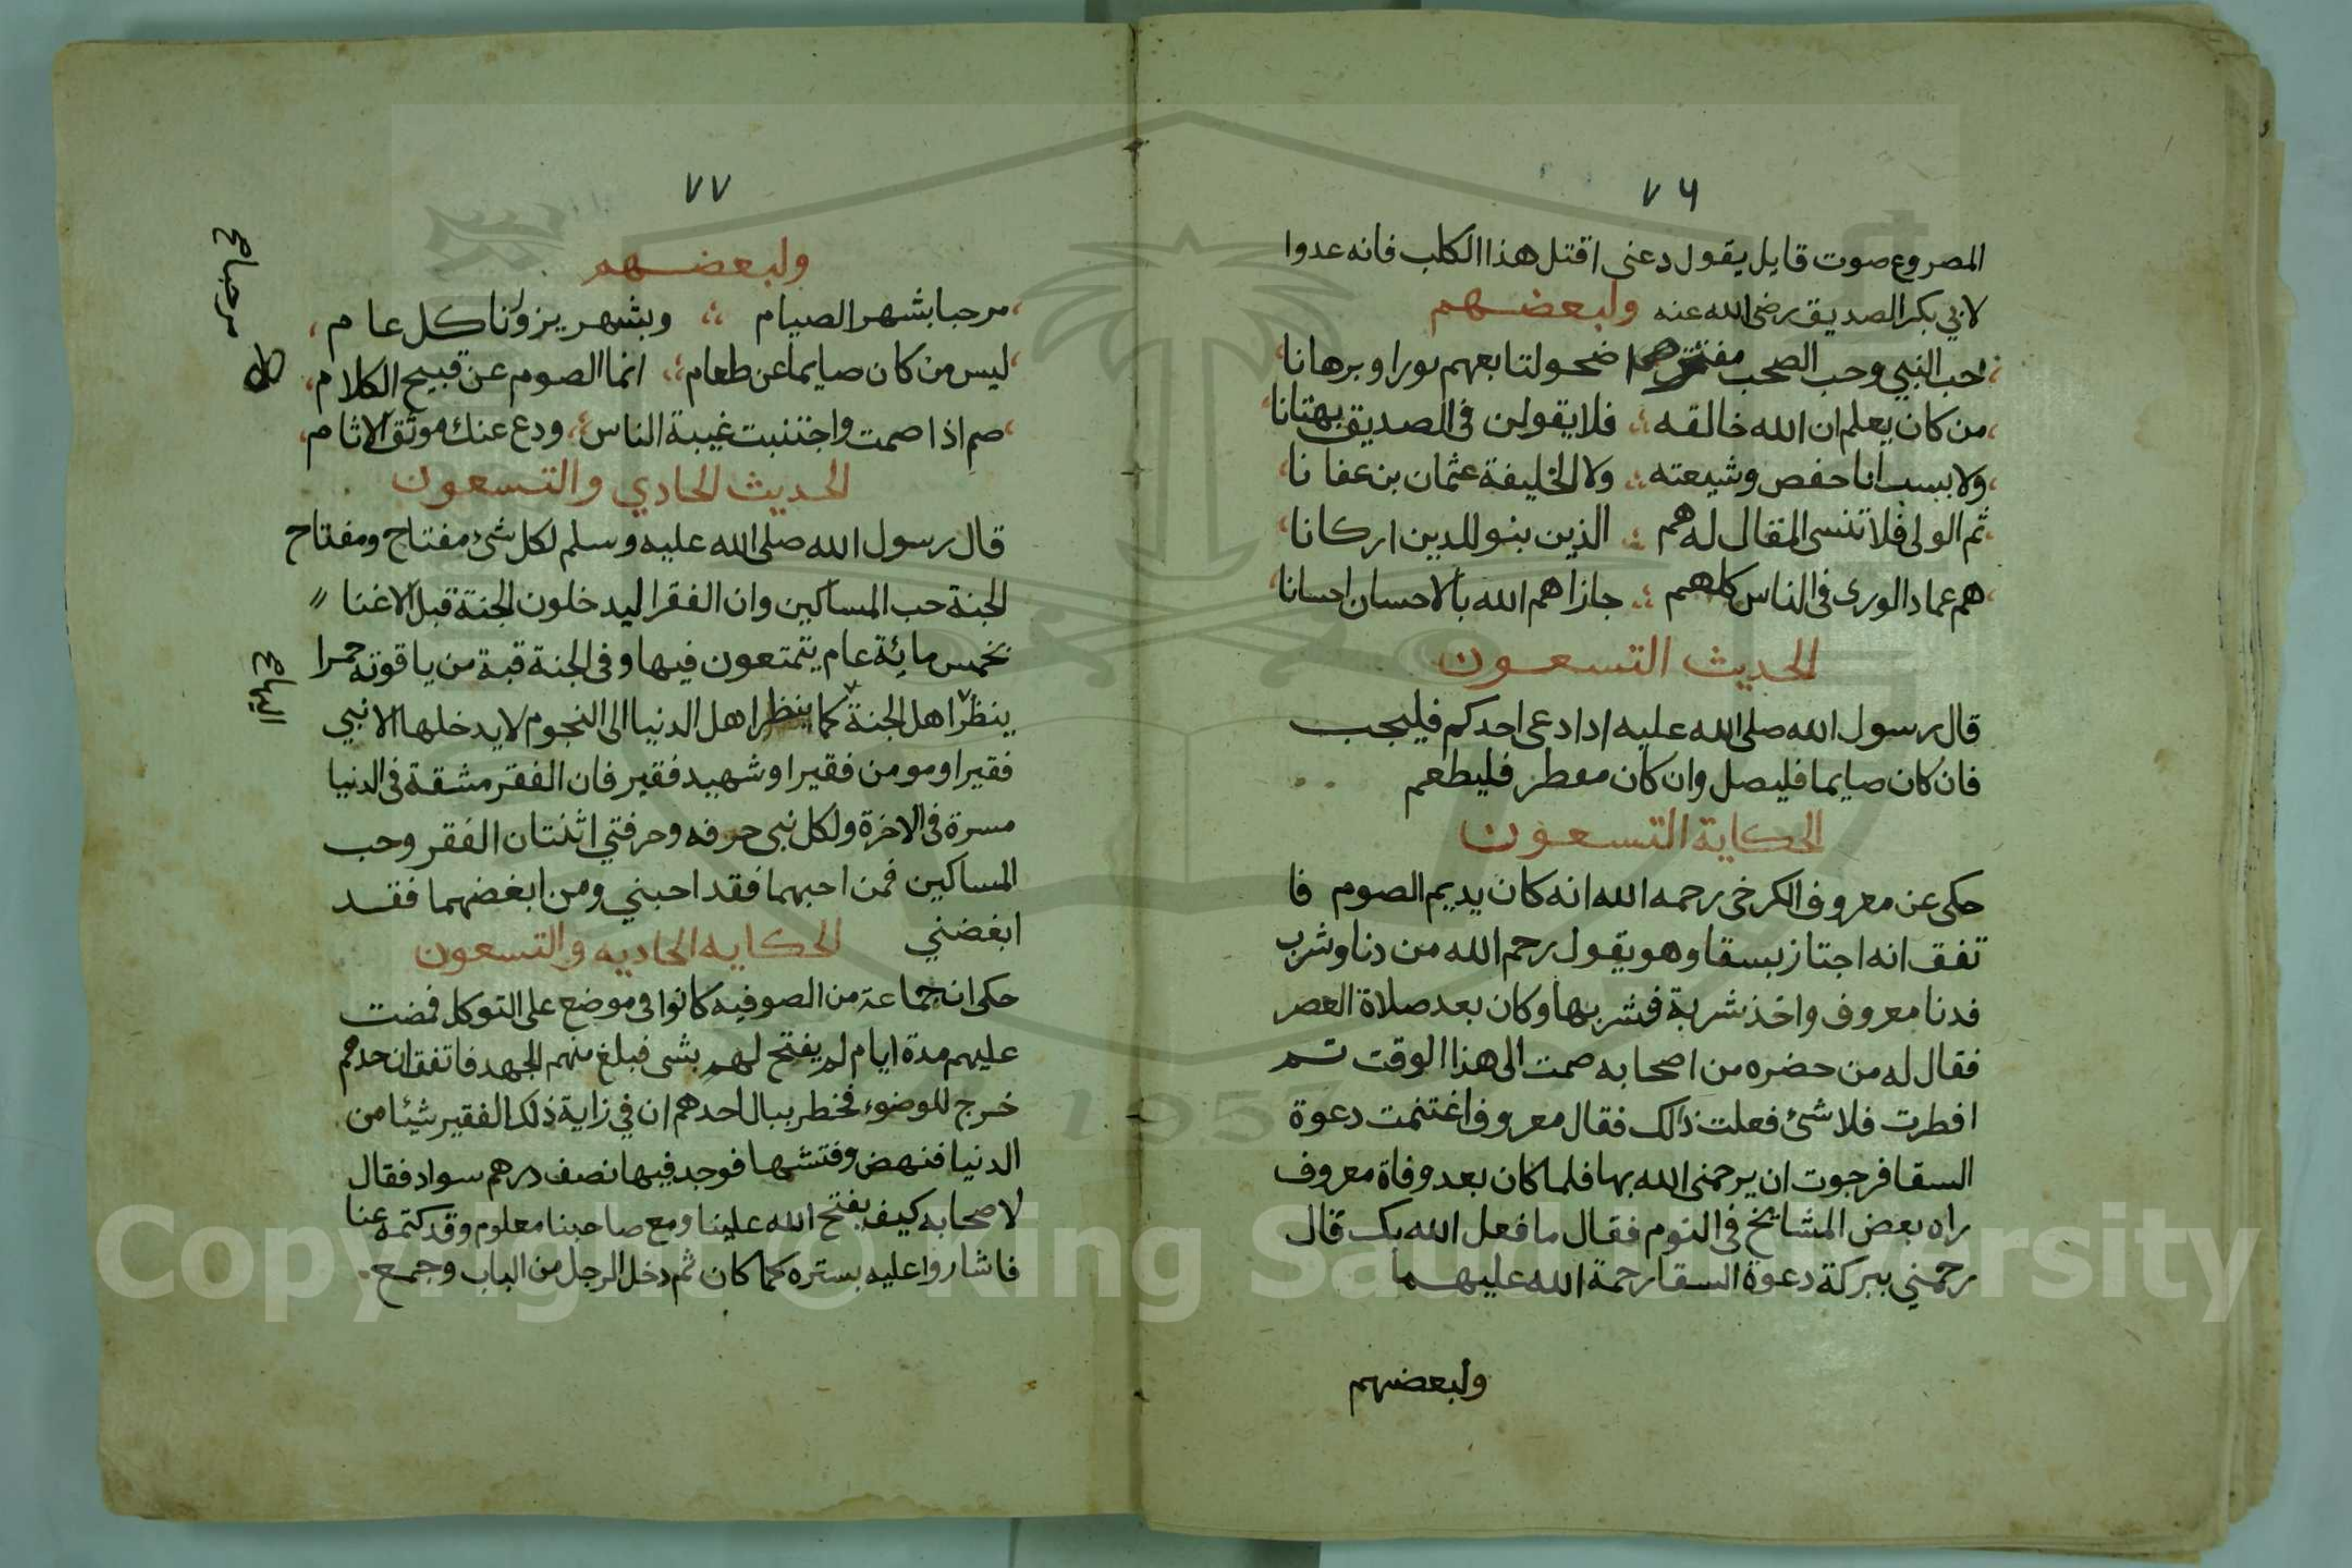 ٧٦
المصروع صوت قايل يقول دعنى اقتل هذا الكلب فانه عدوا
لابي بكر الصديق رضى الله عنه ولبعضهم
حب النبي وحب الصحب مفترض اضحو لتابعهم نورا وبرهانا
من كان يعلم ان الله خالقه فلا يقولن فى الصديق بهتانا
ولا يسب ابا حفص وشيعته ولا الخليفة عثمان بن عفانا
ثم الولى فلا تنسى المقال له هم الذين بنو للدين اركانا
هم عماد الورى فى الناس كلهم جازاهم الله بالاحسان احسانا
الحديث التسعون
قال رسول الله صلى الله عليه اذا دعى احدكم فليجب
فان كان صايما فليصل وان كان مفطر فليطعم
الحكاية التسعون
حكى عن معروف الكرخى رحمه الله انه كان يديم الصوم فا
تفق انه اجتاز بسقا وهو يقول رحم الله من دنا وشرب
فدنا معروف واخذ شربة فشربها وكان بعد صلاة العصر
فقال له من حضره من اصحابه صمت الى هذا الوقت ثم
افطرت فلاشئ فعلت ذالك فقال معروف اغتنمت دعوة
السقا فرجوت ان يرحمنى الله بها فلما كان بعد وفاة معروف
راه بعض المشايخ فى النوم فقال ما فعل الله بك قال
رحمني ببركة دعوة السقا رحمة الله عليهما
ولبعضهم
٧٧
ولبعضهم
مرحبا بشهر الصيام وبشهر يزورنا كل عام
ليس من كان صايما عن طعام انما الصوم عن قبيح الكلام
صم اذا صمت واجتنبت غيبة الناس ودع عنك موثق الاثام
الحديث الحادي والتسعون
قال رسول الله صلى الله عليه وسلم لكل شئ مفتاح ومفتاح
الجنة حب المساكين وان الفقرا ليدخلون الجنة قبل الاغنا
بخمس مائة عام يتمتعون فيها وفى الجنة قبة من ياقوته حمرا
ينظر اهل الجنة كما ينظر اهل الدنيا الى النجوم لا يدخلها الا نبي
فقيرا ومومن فقيرا وشهيد فقير فان الفقر مشقة فى الدنيا
مسرة فى الاخرة ولكل نبى حرفه وحرفتي اثنتان الفقر وحب
المساكين فمن احبهما فقد احبني ومن ابغضهما فقد
ابغضني الحكايه الحاديه والتسعون
حكى ان جماعة من الصوفيه كانوا فى موضع على التوكل فمضت
عليهم مدة ايام لم يفتح لهم بشى فبلغ منهم الجهد فاتفق ان احدهم
خرج للوضوء فخطر ببال احدهم ان في زاية ذلك الفقير شيئا من
الدنيا فنهض وفتشها فوجد فيها نصف درهم سواد فقال
لاصحابه كيف يفتح الله علينا ومع صاحبنا معلوم وقد كتمه عنا
فاشاروا عليه بستره كما كان ثم دخل الرجل من الباب وجمع
اليها ع
Copyright © King Saud University
195